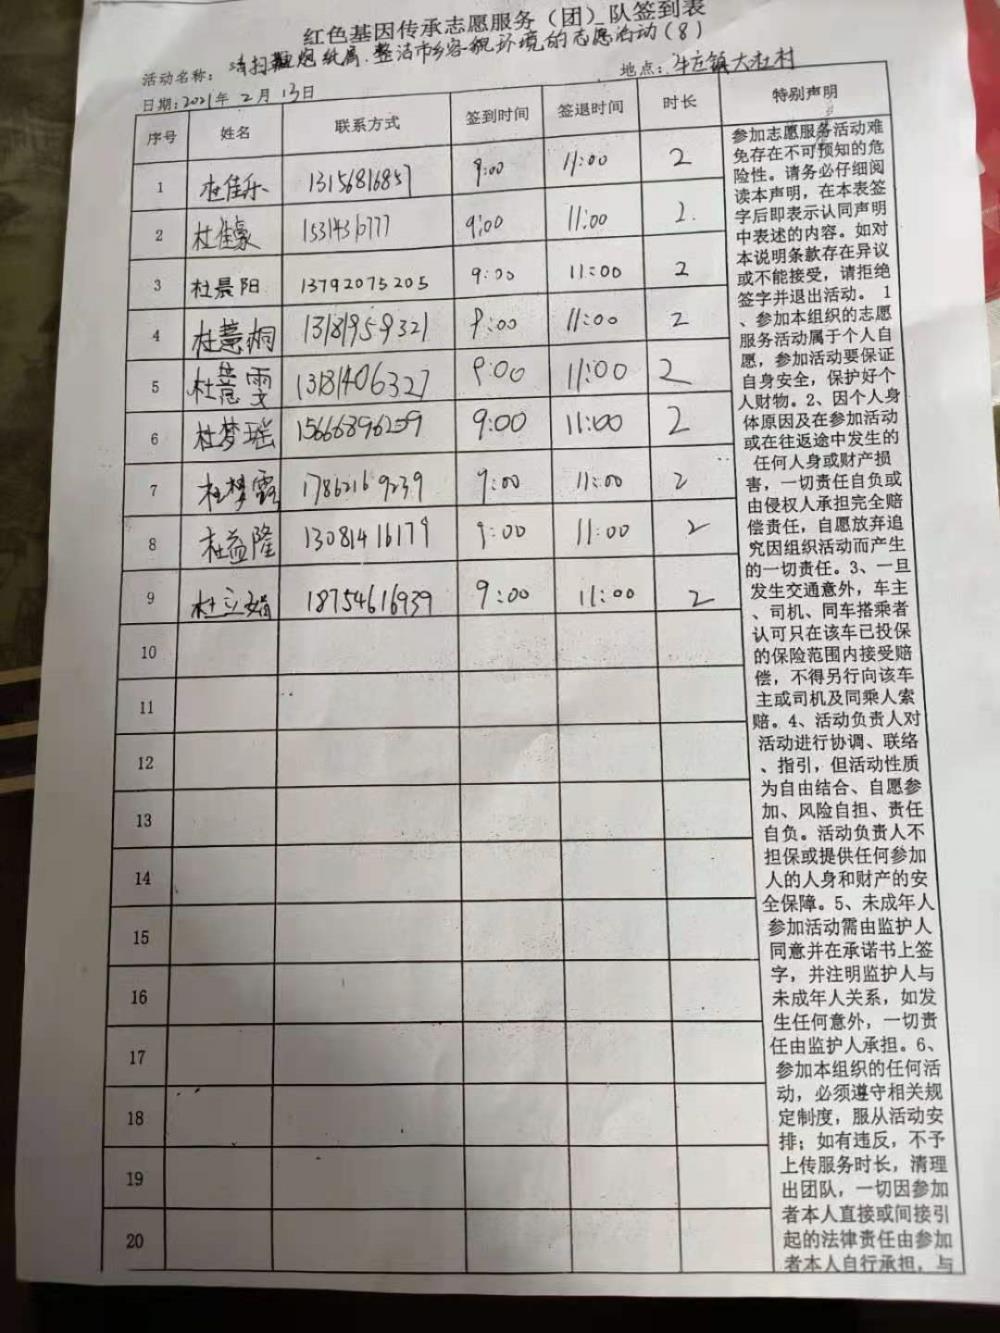 红色基因传承志愿服务（团）队签到表
活动名称：清扫鞭炮纸屑.整洁市乡容貌环境的志愿活动(8)
地点：牛庄镇大杜村
日期:2021年2月13日
序号 姓名 联系方式 签到时间 签退时间 时长 特别声明
1 杜佳乐 13156816857 9:00 11:00 2
2 杜佳豪 9:00 11:00 2.
3 杜晨阳 13792075205 9:00 11:00 2
4 杜慧桐 13181959321 9:00 11:00 2
5 杜慧雯 13181406327 9:00 11:00 2
6 杜梦瑶 15666896259 9:00 11:00 2
7 杜梦露 17862169239 9:00 11:00 2
8 杜益隆 13081416179 9:00 11:00 2
9 杜立娟 18754616939 9:00 11:00 2
10
11
12
13
14
15
16
17
18
19
20
参加志愿服务活动难
免存在不可预知的危
险性。请务必仔细阅
读本声明，在本表签
字后即表示认同声明
中表述的内容。如对
本说明条款存在异议
或不能接受，请拒绝
签字并退出活动。 1
、参加本组织的志愿
服务活动属于个人自
愿，参加活动要保证
自身安全，保护好个
人财物。2、因个人身
体原因及在参加活动
或在往返途中发生的
任何人身或财产损
害，一切责任自负或
由侵权人承担完全赔
偿责任，自愿放弃追
究因组织活动而产生
的一切责任。3、一旦
发生交通意外，车主
、司机、同车搭乘者
认可只在该车已投保
的保险范围内接受赔
偿，不得另行向该车
主或司机及同乘人索
赔。4、活动负责人对
活动进行协调、联络
、指引，但活动性质
为自由结合、自愿参
加、风险自担、责任
自负。活动负责人不
担保或提供任何参加
人的人身和财产的安
全保障。5、未成年人
参加活动需由监护人
同意并在承诺书上签
字，并注明监护人与
未成年人关系，如发
生任何意外，一切责
任由监护人承担。6、
参加本组织的任何活
动，必须遵守相关规
定制度，服从活动安
排；如有违反，不予
上传服务时长，清理
出团队，一切因参加
者本人直接或间接引
起的法律责任由参加
者本人自行承担，与